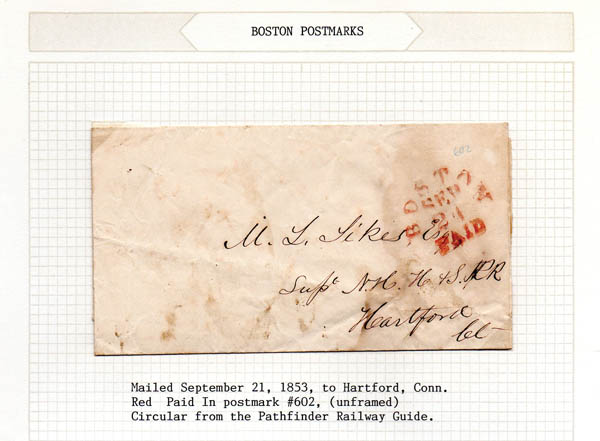 BOSTON POSTMARKS
602
BOSTON
SEP
21
PAID
M. L. Sikes Esq
Supt N.H. H & S. RR
Hartford
Ct
Mailed September 21, 1853, to Hartford, Conn.
Red Paid In postmark #602, (unframed)
Circular from the Pathfinder Railway Guide.